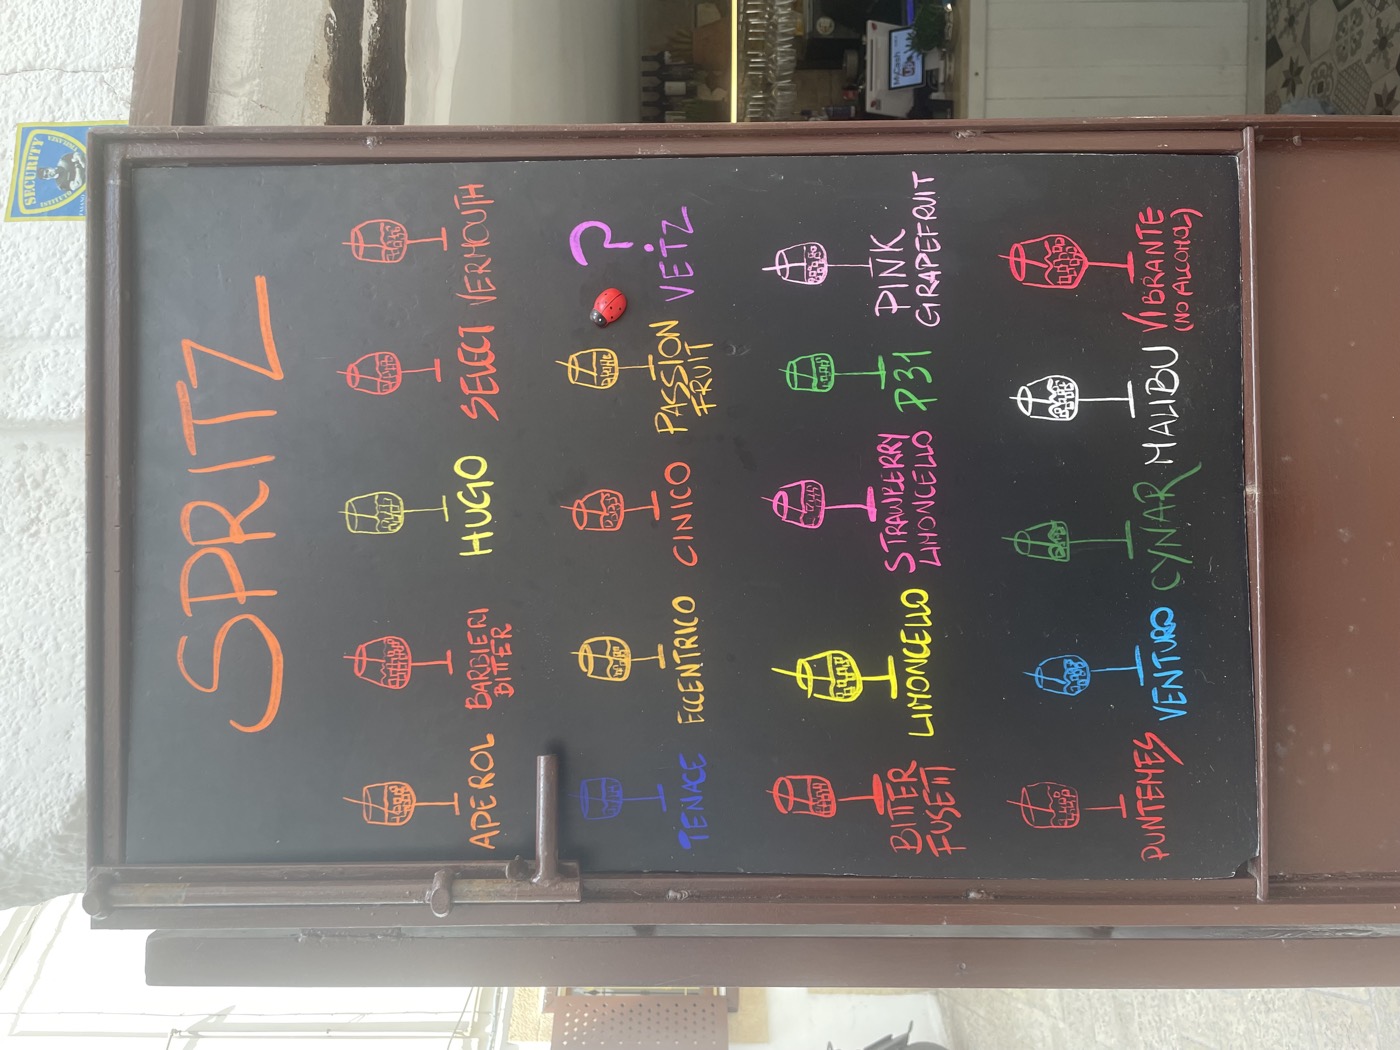 SPRITZ
APEROL
BARBIERI
BITTER
HUGO
SELECT
VERMOUTH
TENACE
ECCENTRICO
CINICO
PASSION
FRUIT
?
VEITZ
BITTER
FUSETTI
LIMONCELLO
STRAWBERRY
LIMONCELLO
P31
PINK
GRAPEFRUIT
PUNTEMES
VENTURO
CYNAR
MALIBU
VIBRANTE
(NO ALCOHOL)
SECURITY
MyCash